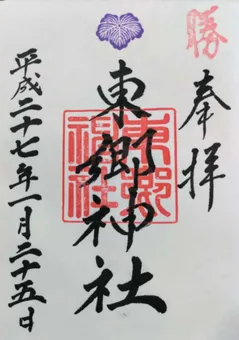 勝
奉拝
東郷神社
東郷神社
平成二十七年一月二十五日